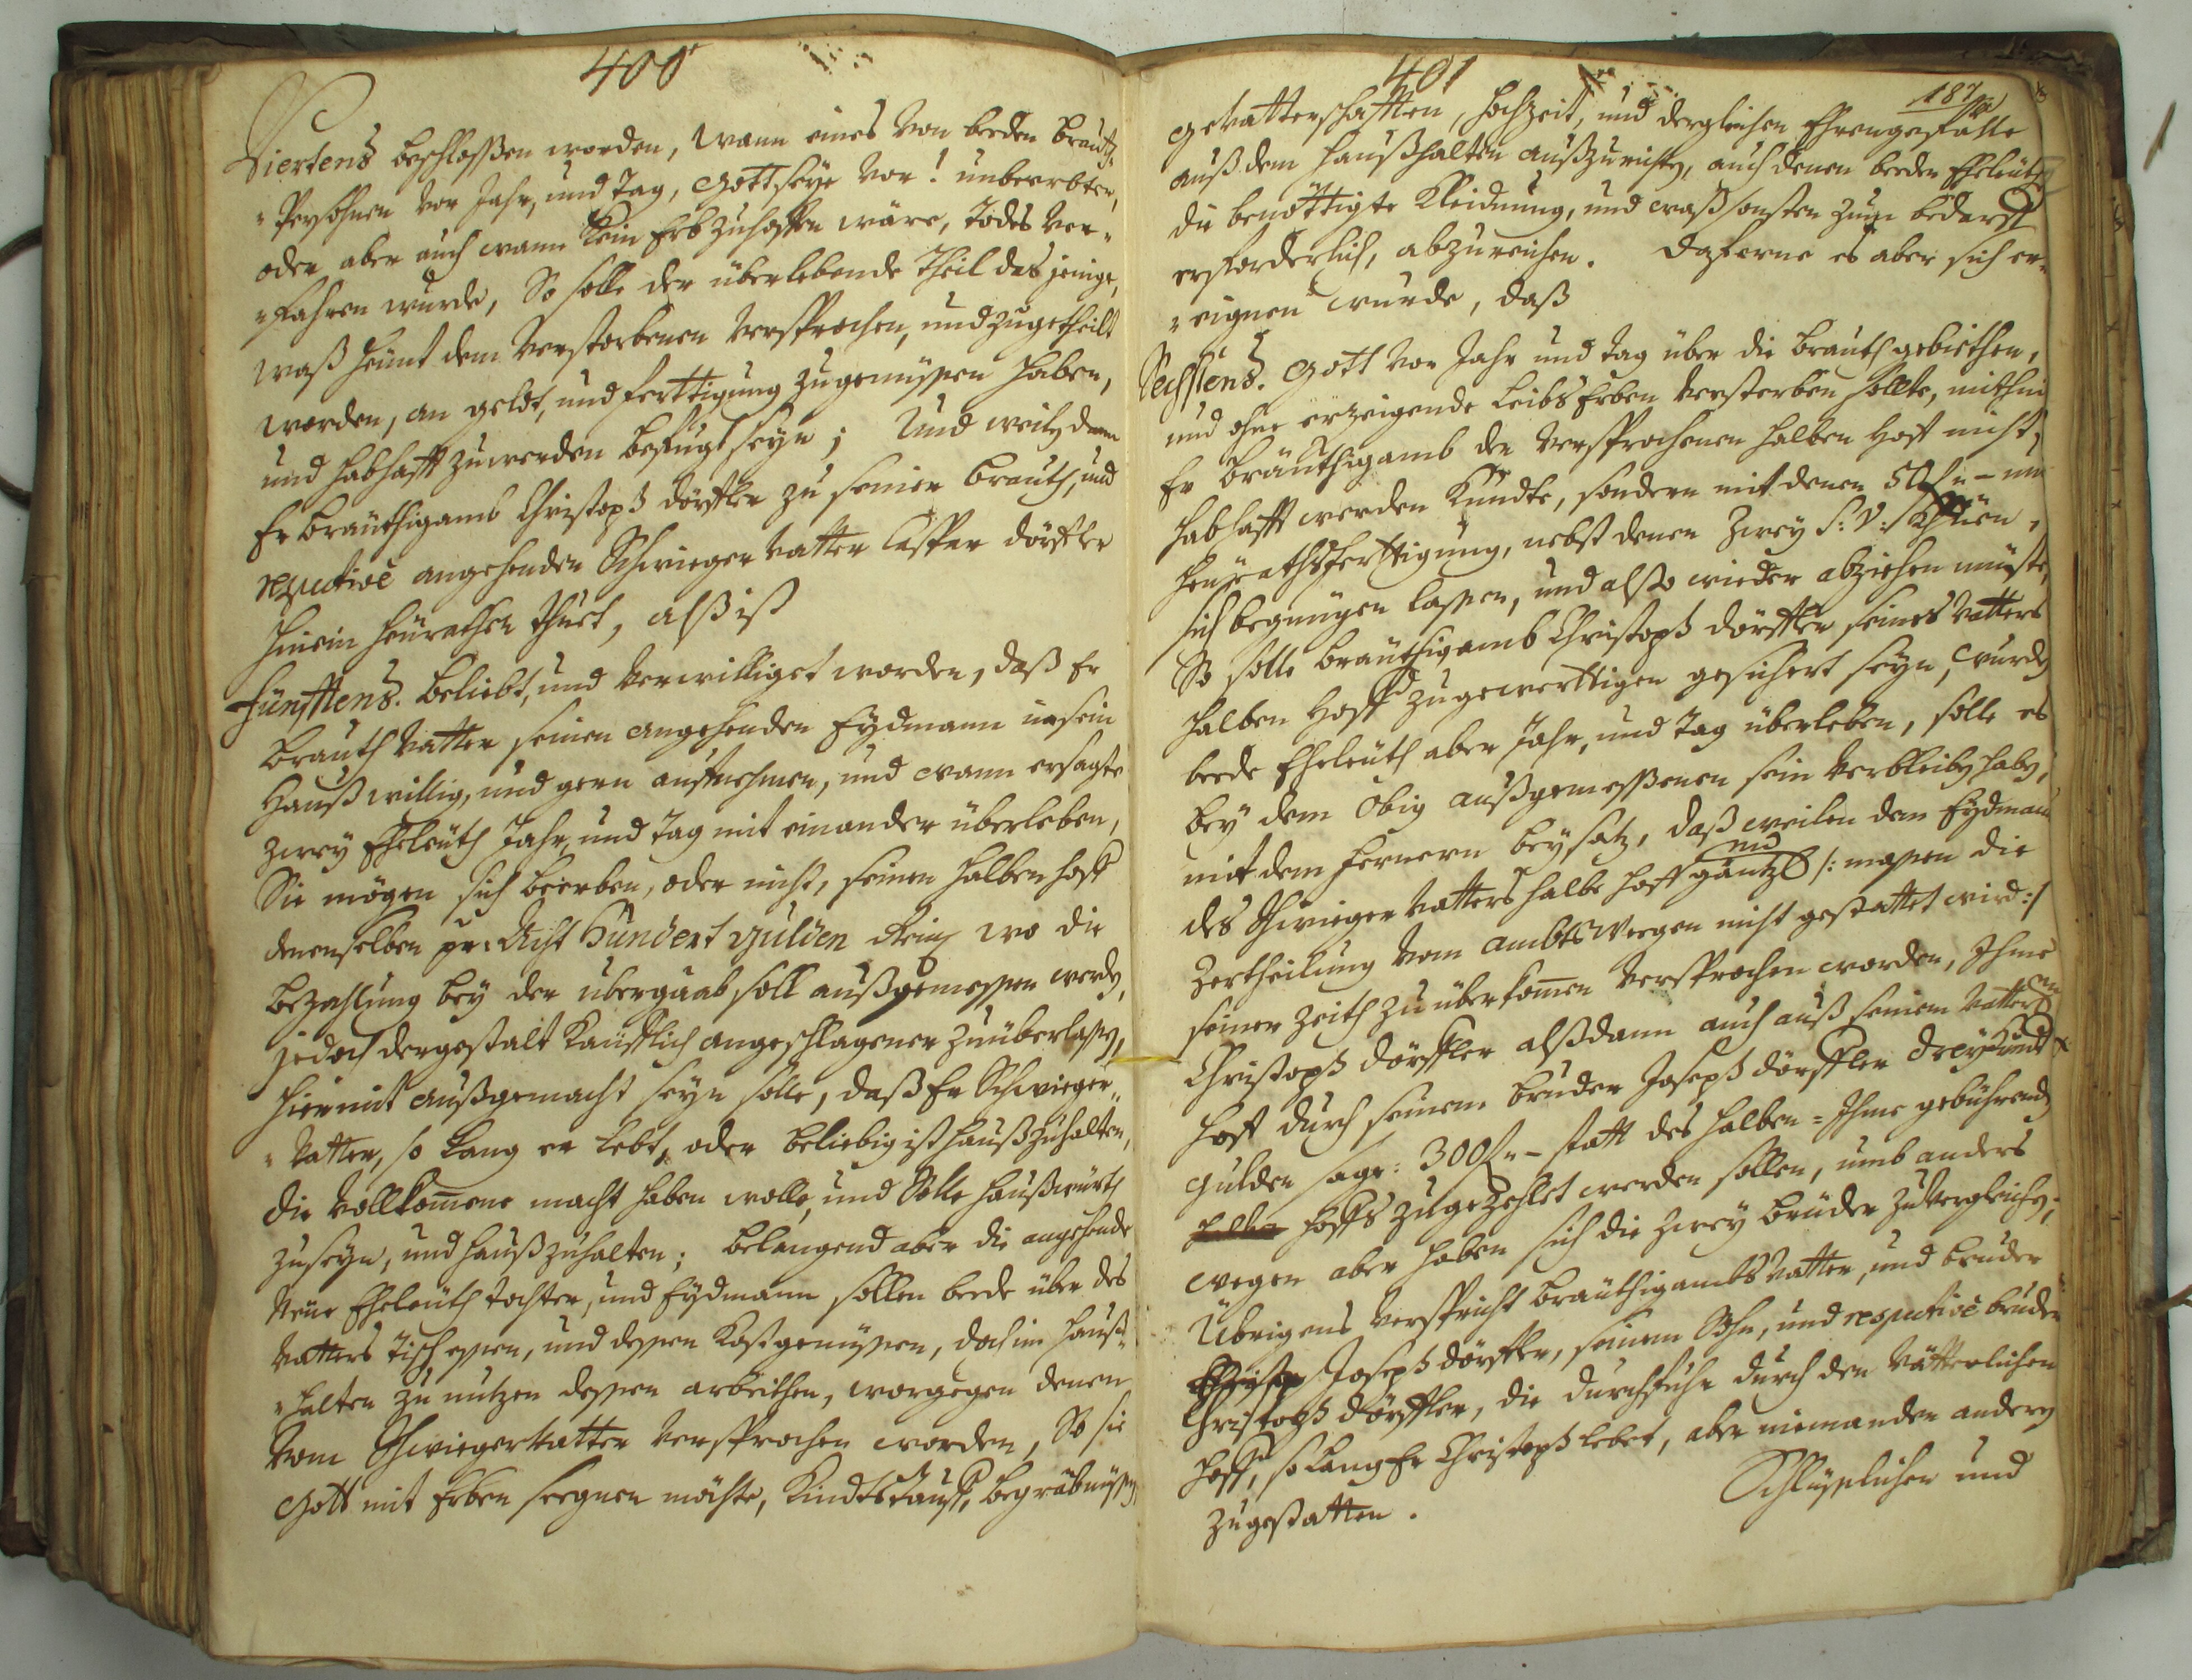 400
Viertens beschlossen worden, wann eines von beeden brauth-
-Persohnen vor Jahr, und Tag, Gott seye vor! unbeerbter,
oder aber auch wann kein Erb zuhoffen wäre, Todts ver-
-fahren wurde, So solle der überlebende Theil das jenige,
waß heünt dem Verstorbenen versprochen, und zugetheilt
worden, an geldt, und ferttigung zugenüssen haben,
und habhafft zuwerden befugt seyn; Und weilen dann
Er bräuthigamb Christoph dörffler zu seiner brauth, und
respective angehenden Schwieger Vatter Casper dörffler
hinein heürathen thuet, alß ist
Fünfftens. Beliebt, und verwilliget worden, daß Er
brauth Vatter seinen angehenden Eydmann in sein
Hauß willig, und gern aufnehmen, und wann ersagte
zwey Eheleüth Jahr, und Tag mit einander überleben,
Sie mögen sich beerben, oder nicht, seinen halben hoff
denenselben pr: Acht Hundert gulden Rein wo die
bezahlung bey der übergaab soll außgemessen werden,
jedoch dergestalt Kaüfflich angeschlagener zuüberlassen,
hiermit außgemacht seyn solle, daß Er Schwieger-
-Vatter, so lang er lebt, oder beliebig ist haußzuhalten,
die Vollkomene macht haben wolle, und Solle haußwürth
zuseyn, und haußzuhalten; belangend aber die angehende
Neüe Eheleüth tochter, und Eydmann sollen beede über des
Vatters tisch essen, und dessen Kost genüssen, doch im hauß-
-halten zu nutzen dessen arbeithen, worgegen denen
vom Schwiegervatter versprochen worden, So sie
Gott mit Erben seegnen möchte, Kindtstauff, begräbnussen,
401
187
gevatterschafften, hochzeit, und dergleichen Ehrengesfälle
auß dem haußhalten außzurichten, auch denen beeden Eheleüthen
die benöttigte Kleidung, und waß sonsten zum bedarff
erforderlich, abzureichen. Daferne es aber sich er-
-eignen wurde, daß
Sechstens. Gott vor Jahr und Tag über die brauth gebiethen,
und ohne erzeigende Leibs Erben versterben sollte, mithin
Er bräuthigamb der versprochenen halben Hoff nicht,
habhafft werden kundte, sondern mit denen 50 fl:- und
heürathsferttigung, nebst denen zwey S: V: Khüen,
sich begnügen lassen, und also wieder abziehen müste,
So solle bräuthigamb Christoph dörffler seines Vatters
halben Hoff zugewerttigen gesichert seyn, wurden
beede Eheleüth aber Jahr, und Tag überleben, solle es
bey dem obig außgemessenen sein verbleiben haben,
mit dem fernern beysatz, daß weilen dem Eydmann
des Schwieger Vatters halbe hoff gäntzl /: massen die
Zertheilung vom ambtswegen nicht gestattet wird:/
seiner Zeith zu überkomen versprochen worden, Ihme
Christoph dörffler alßdann auch auß seinem Vatter
hoff durch seinem bruder Joseph dörffler dreyhundt
gulden sage: 300 fl:- statt des halben - Ihme gebührenden
hoffs zugezehlet werden sollen, umb anders
wegen aber haben sich die zwey brüder zuvergleichen;
Übrigens verspricht bräuthigambs Vatter, und bruder
Joseph dörffler, seinem Sohn, und respective bruder
Christoph dörffler, die durchfuhr durch den Vätterlichen
hoff, so lang Er Christoph lebet, aber niemanden andern
zugestatten.
Schlüsslichen und